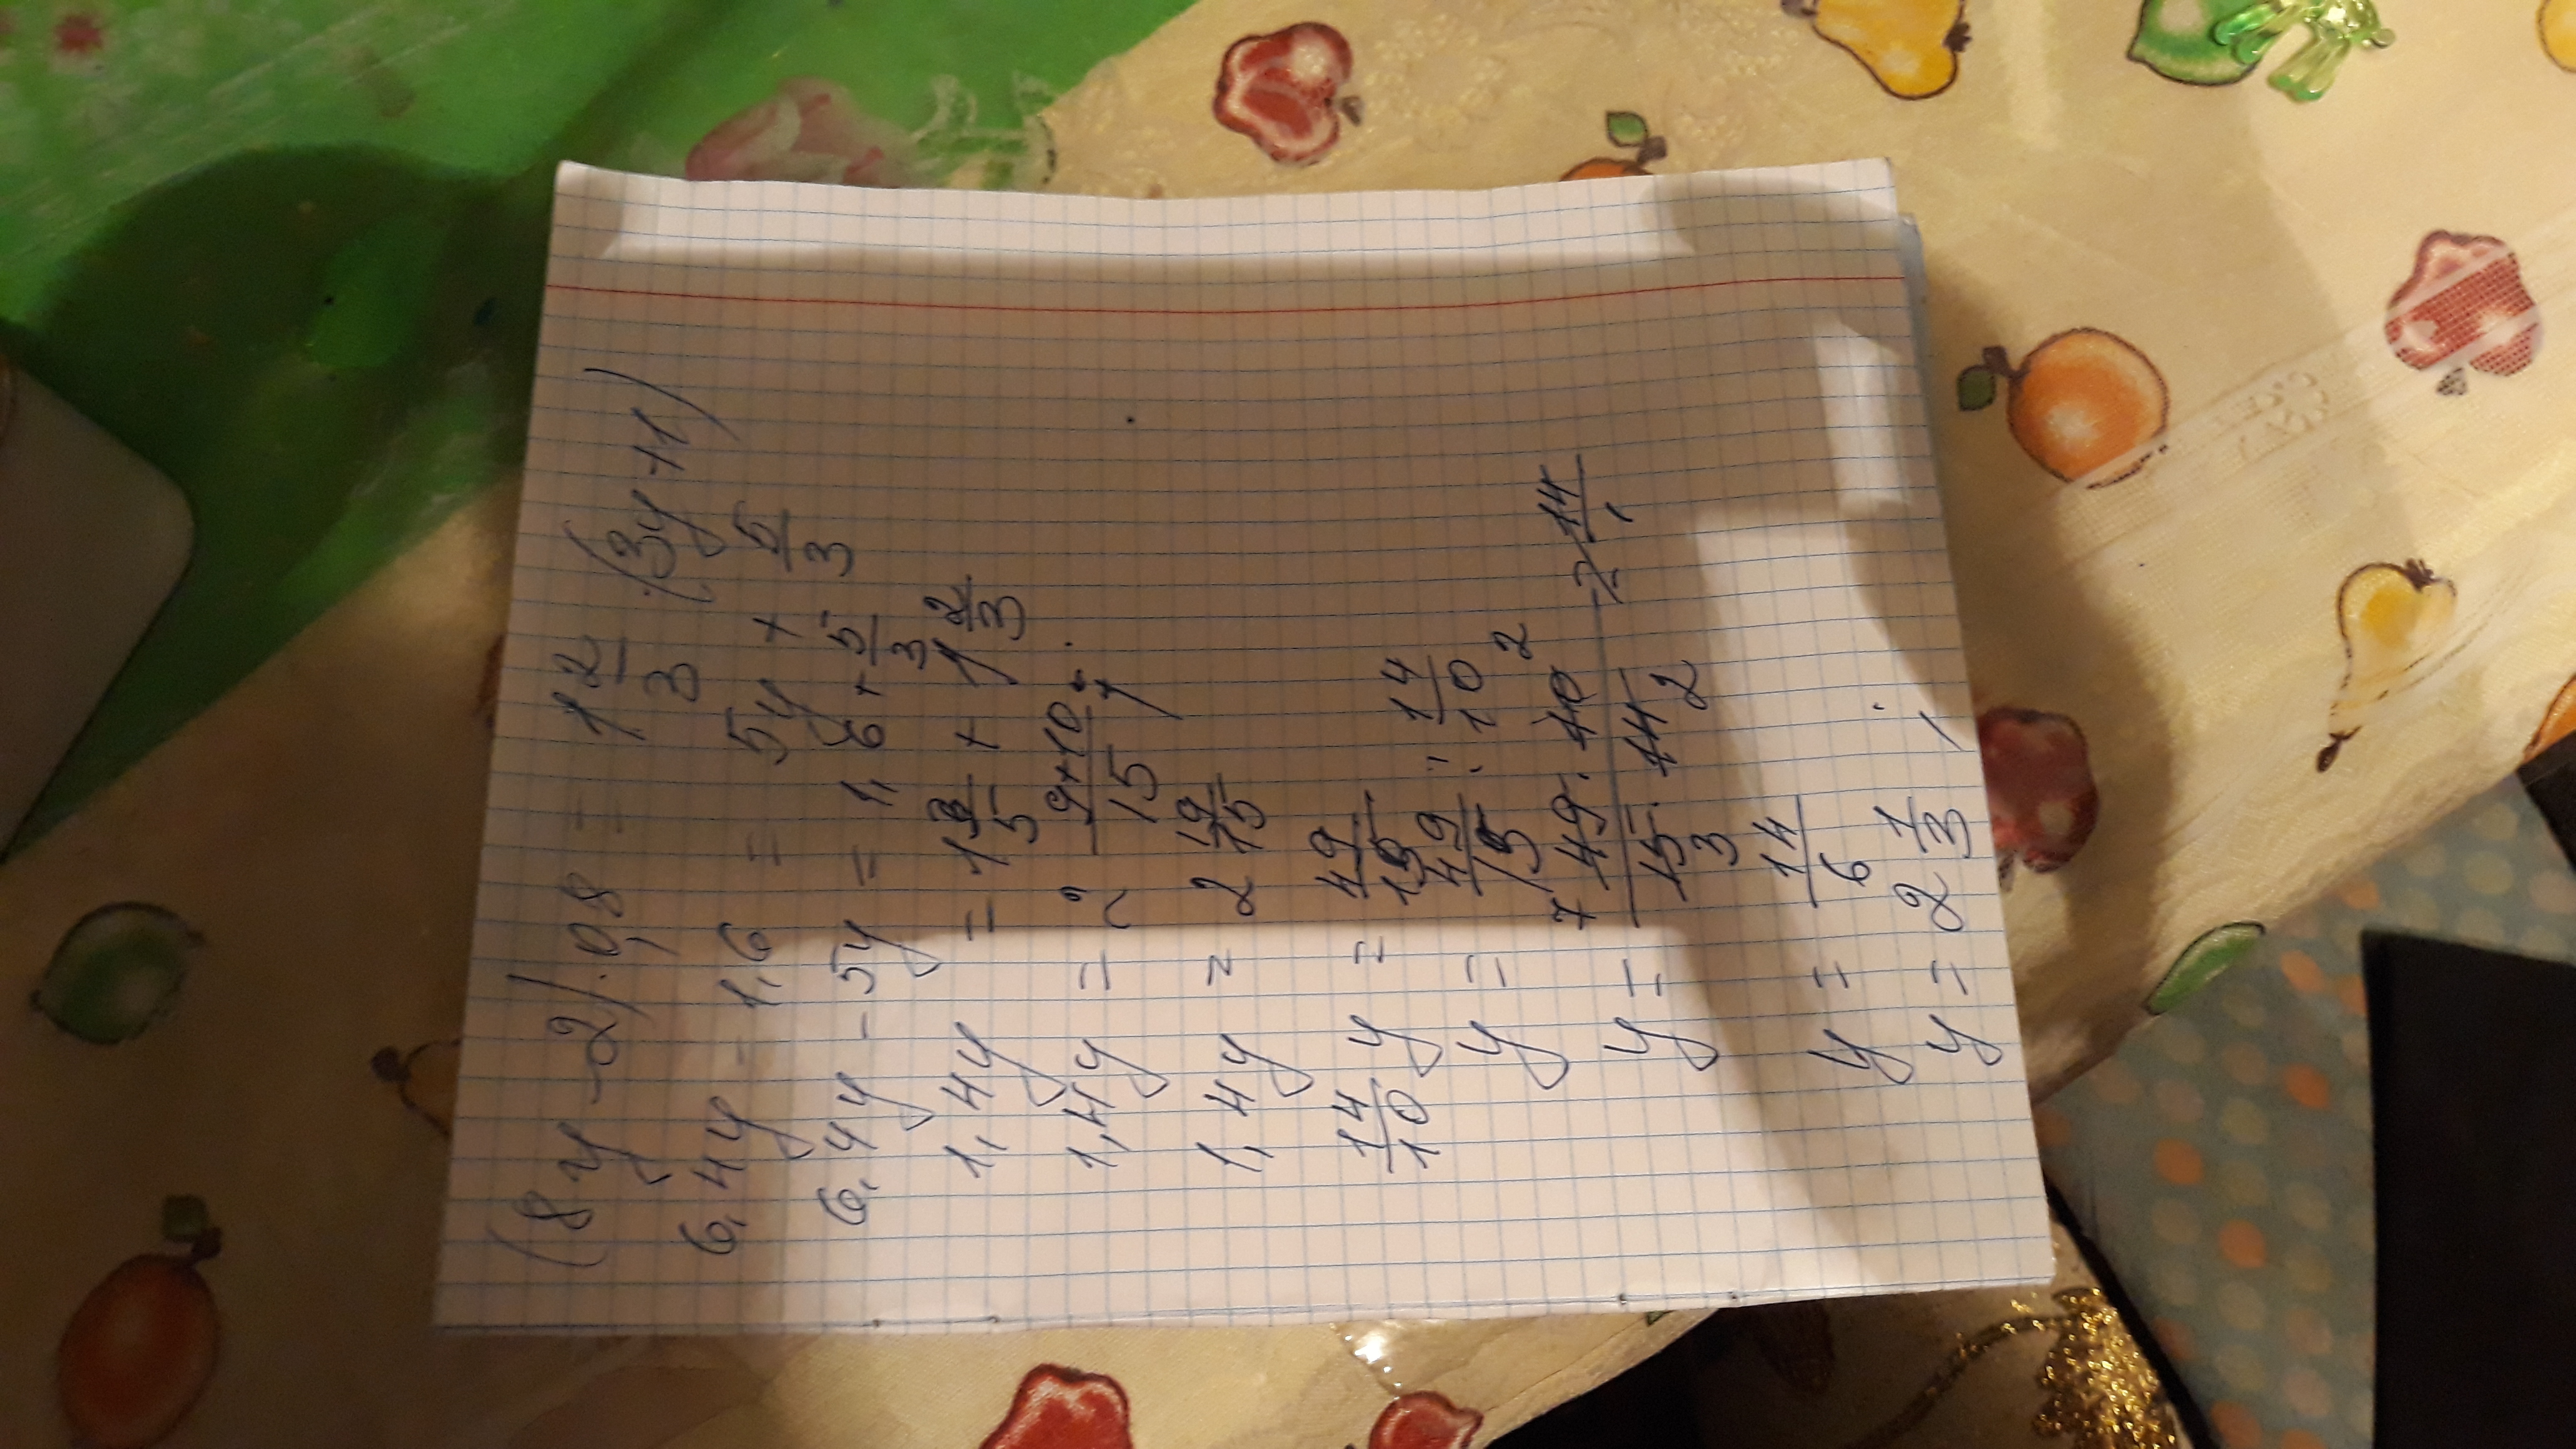 (8y-2)·0,8 = 1 2/3 ·(3y+1)
6,4y - 1,6 = 5y + 5/3
6,4y - 5y = 1,6 + 5/3
1,4y = 1 3/5 + 1 2/3
1,4y = 2 9+10/15
1,4y = 2 19/15
14/10 y = 49/15
y = 49/15 : 14/10
y = 49·10/15·14
y = 14/6
y = 2 1/3